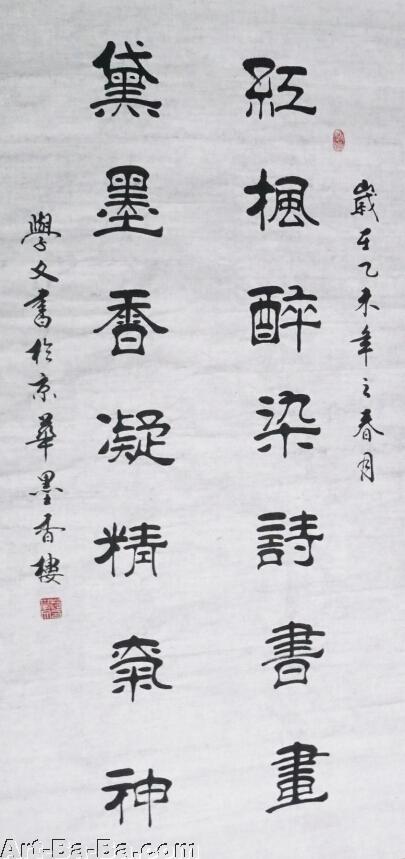 歲在乙未年之春月
紅楓醉染詩書畫
黛墨香凝精氣神
學文書於京華墨香樓
Art-Ba-Ba.com